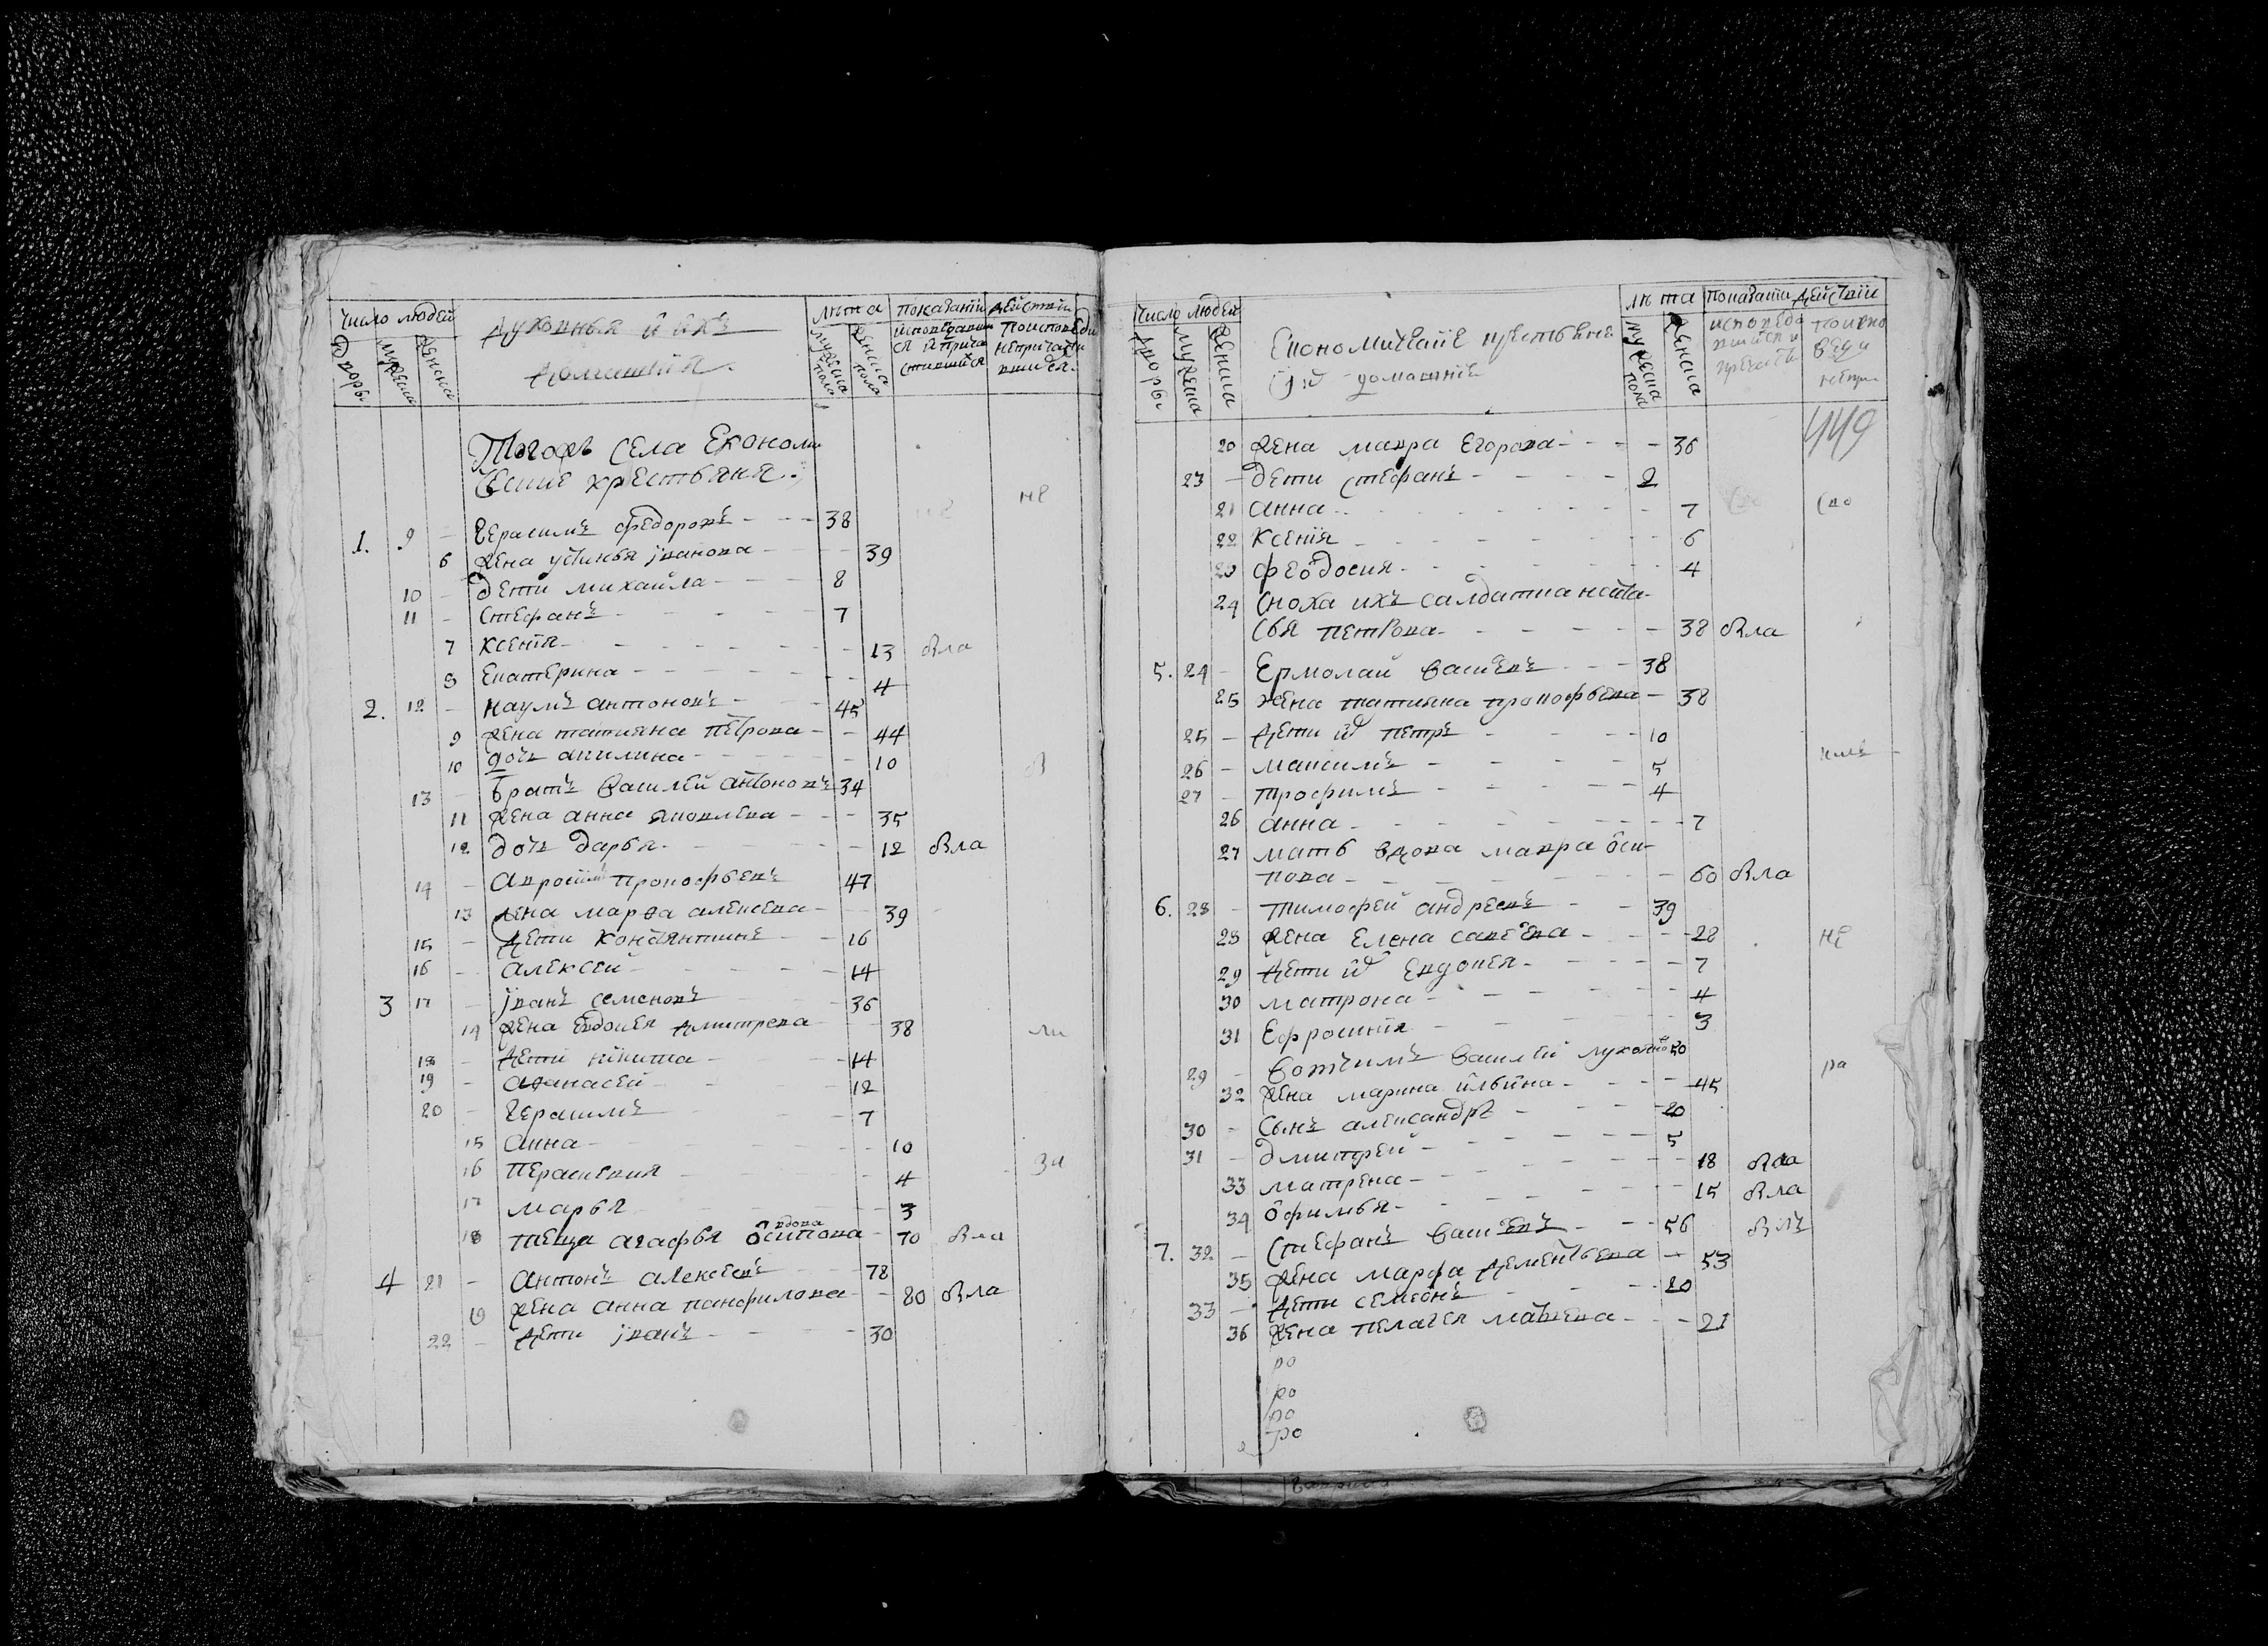 Число людей
Духовныя и ихъ
домашнія.
лѣта
показаніи дѣйствіи
дворы
мужеска
женска
мужеска пола
женска пола
исповѣдавши
ся и прича
стившися
поисповѣди
непричасти
вшися.
Тогожъ села Економи
ческие хрестьяня.
1. 9 - Герасимъ Федоровъ - - - 38
не
6 жена устинья іванова - - - 39
10 - дети михаила - - - 8
11 - стефанъ - - - 7
7 ксенія - - - 13 вла
8 Екатерина - - - 4
2. 12 - наумъ антоновъ - - 45
9 жена татияна петрова - - 44
10 дочь акилина - - - 10
13 - братъ василей антоновъ 34
11 жена анна яковлева - - - 35
12 дочь дарья - - - 12 вла
14 - Прокофьевъ 47
13 жена марфа алексеева - - 39
15 - дети констянтинъ - - 16
16 - алексей - - - 14
3 17 - іванъ семеновъ - - 36
14 жена евдокея дмитрева - 38
ли
18 - дети никита - - 14
19 - афанасей - - - 12
20 - Герасимъ - - - 7
15 анна - - - 10
16 перасковия - - - 4
17 марья - - - 3
вдова
18 теща агафья осипова - 70 вла
4 21 - антонъ алексеевъ - - 78
19 жена анна панфилова - - 80 вла
22 - дети іванъ - - - 30
Число людей
Економическіе крестьяне
и ихъ домашніе
лѣта
показаніи дѣйствіи
дворы
мужеска
женска
мужеска пола
женска
449
20 жена мавра Егорова - - - 36
23 - дети стефанъ - - - 2
21 анна - - - 7
22 ксенія - - - 6
23 феодосия - - - 4
24 сноха ихъ салдатка наста-
сья петрова - - - 38 вла
5. 24 - Ермолай васильевъ - - - 38
25 жена татияна прокофьева - 38
25 - дети их петръ - - - 10
26 - максимъ - - - 5
27 - трофимъ - - - 4
26 анна - - - 7
27 мать вдова мавра оси-
пова - - - 60 вла
6. 28 - тимофей андреевъ - - 39
28 жена Елена савельева - - - 28
не
29 дети их евдокея - - - 7
30 матрона - - - 4
31 Ефросиния - - - 3
29 - вотчимъ василей 50
32 жена марина ильина - - - 45
30 - сынъ александръ - - - 20
31 - дмитрей - - - 5
33 матрена - - - 18 вла
34 офимья - - - 15 вла
7. 32 - стефанъ васильевъ - - - 56 влъ
35 жена марфа дементьева - 53
33 - дети семионъ - - - 20
36 жена пелагея матвеева - - - 21
ро
ро
ро
ро